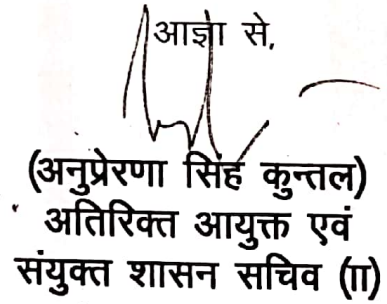 आज्ञा से,
(अनुप्रेरणा सिंह कुन्तल)
अतिरिक्त आयुक्त एवं
संयुक्त शासन सचिव (II)